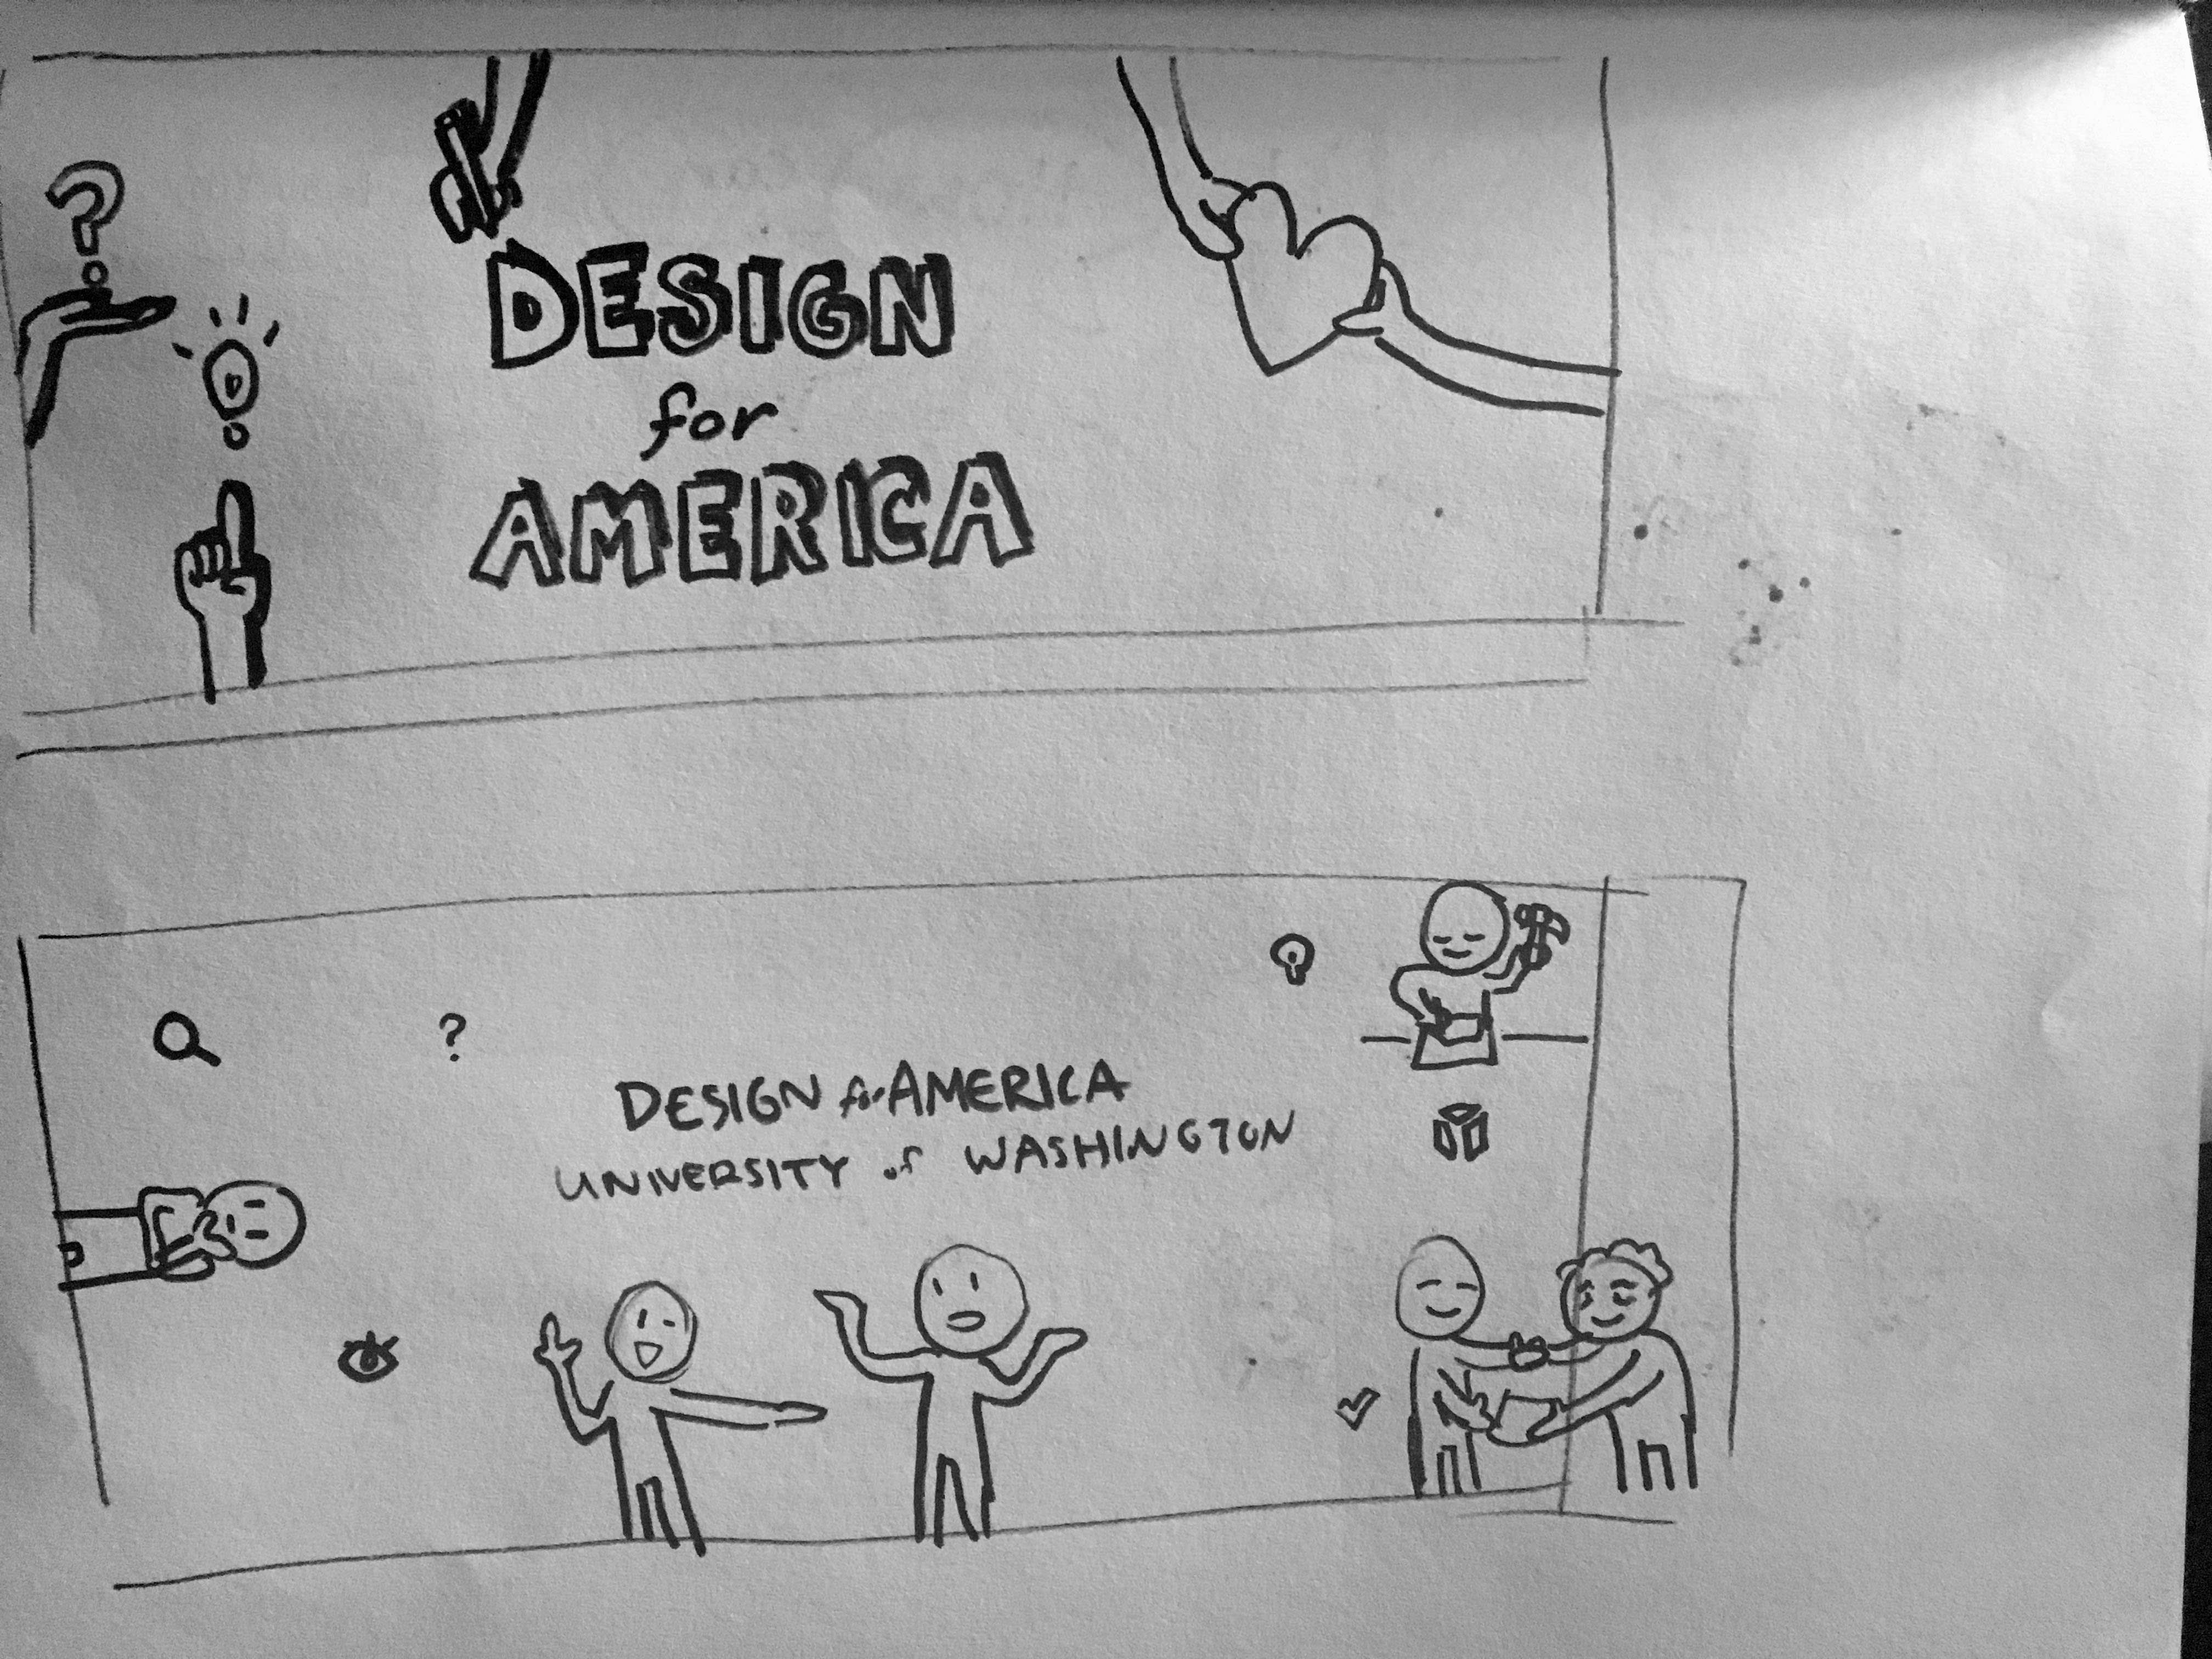 ?
DESIGN
for
AMERICA
?
DESIGN for AMERICA
UNIVERSITY of WASHINGTON